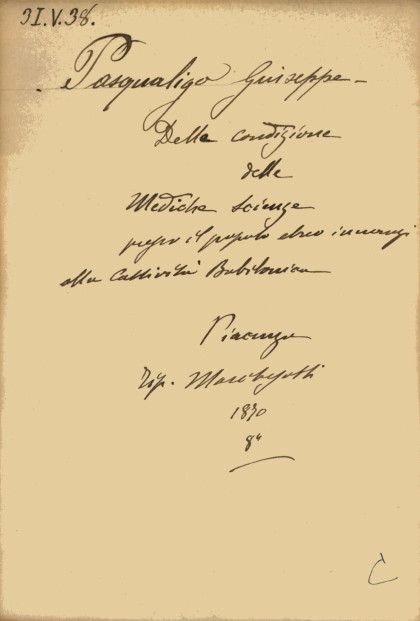 31.V.38.
Pasqualigo Giuseppe –
Della condizione
delle
Mediche scienze
presso il popolo ebreo innanzi
alla Cattività Babilonica
Piacenza
Tip. Marchesotti
1870
8°
C